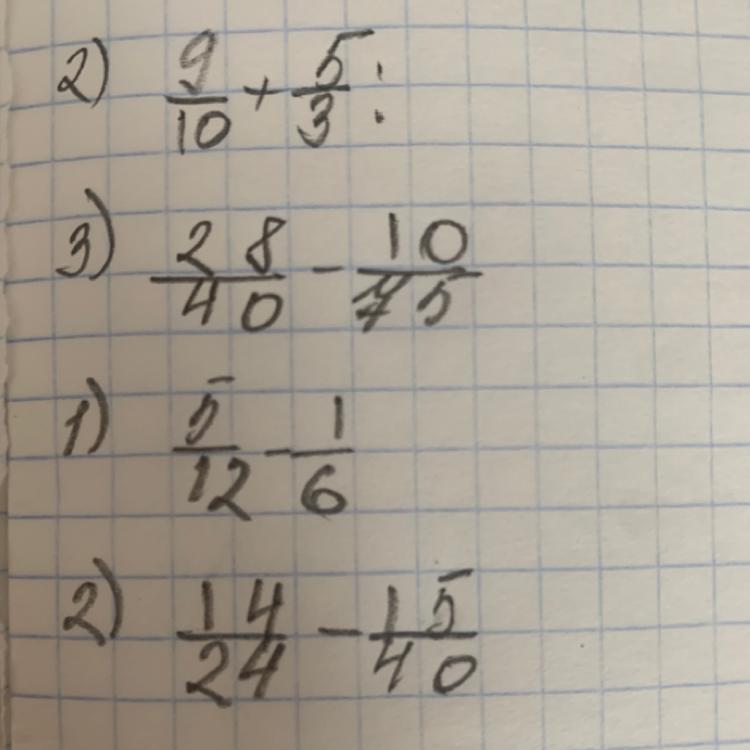 2) 9/10 + 5/3 :
3) 28/40 - 10/75
1) 5/12 - 1/6
2) 14/24 - 15/40